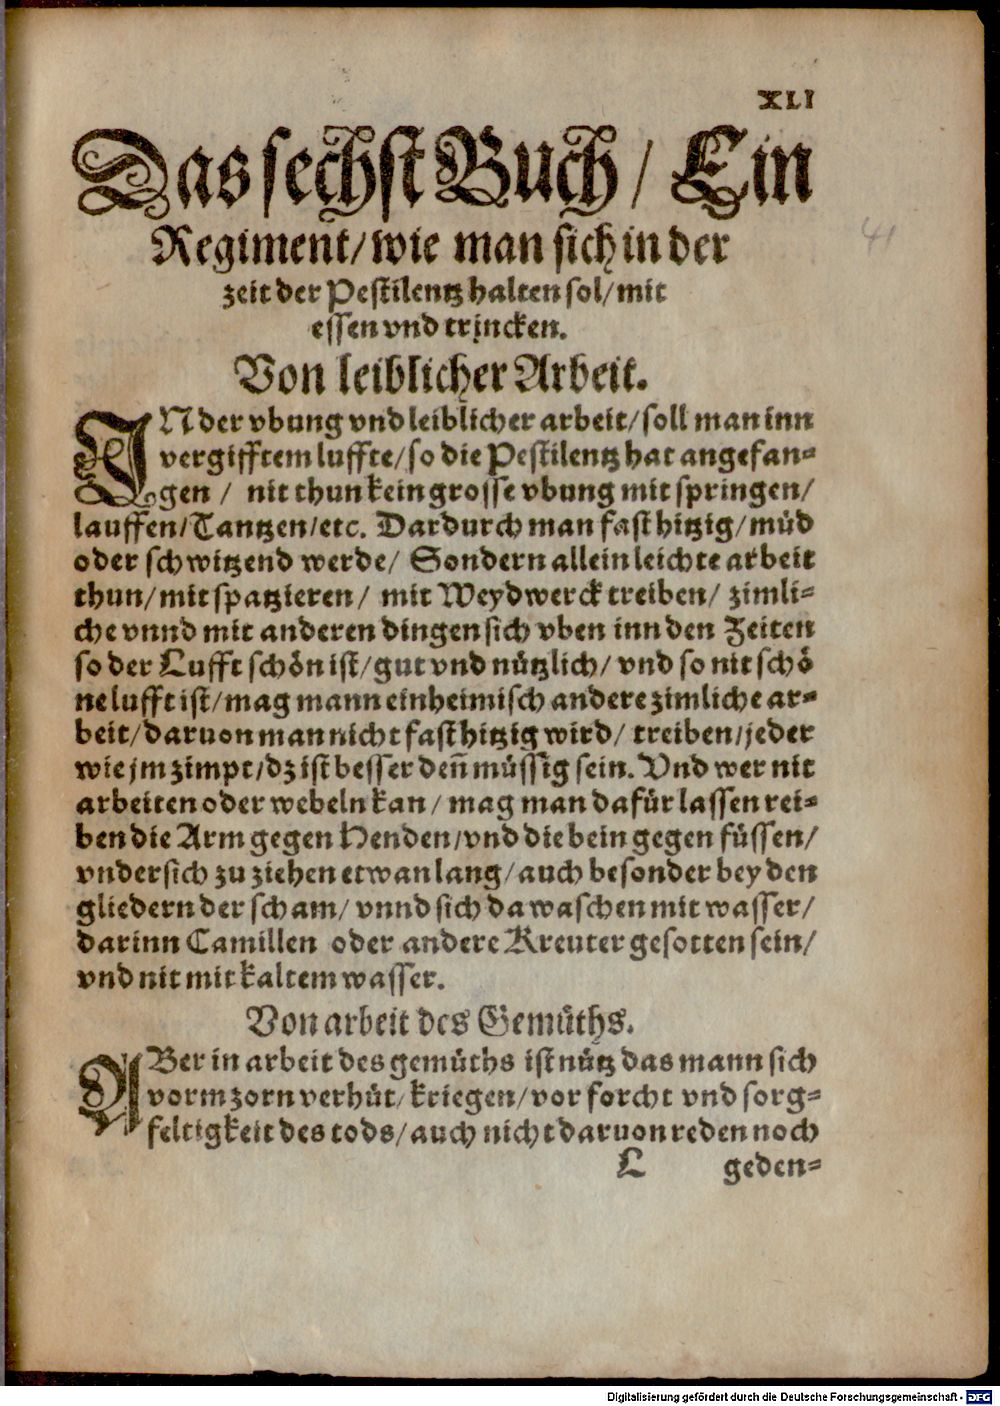 XLI
Das sechst Buch / Ein
Regiment / wie man sich in der
zeit der Pestilentz halten sol / mit
essen vnd trincken.
Von leiblicher Arbeit.
IN der vbung vnd leiblicher arbeit / soll man inn
vergifftem luffte / so die Pestilentz hat angefan⸗
gen / nit thun kein grosse vbung mit springen /
lauffen / Tantzen / etc. Dardurch man fast hitzig / müd
oder schwitzend werde / Sondern allein leichte arbeit
thun / mit spatzieren / mit Weydwerck treiben / zimli⸗
che vnnd mit anderen dingen sich vben inn den Zeiten
so der Lufft schön ist / gut vnd nützlich / vnd so nit schö
ne lufft ist / mag mann einheimisch andere zimliche ar⸗
beit / daruon man nicht fast hitzig wird / treiben / jeder
wie jm zimpt / dz ist besser den̄ müssig sein. Vnd wer nit
arbeiten oder webeln kan / mag man dafür lassen rei⸗
ben die Arm gegen Henden / vnd die bein gegen füssen /
vndersich zu ziehen etwan lang / auch besonder bey den
gliedern der scham / vnnd sich da waschen mit wasser /
darinn Camillen oder andere Kreuter gesotten sein /
vnd nit mit kaltem wasser.
Von arbeit des Gemüths.
ABer in arbeit des gemüths ist nütz das mann sich
vorm zorn verhüt / kriegen / vor forcht vnd sorg⸗
feltigkeit des tods / auch nicht daruon reden noch
L geden⸗
41
Digitalisierung gefördert durch die Deutsche Forschungsgemeinschaft - DFG